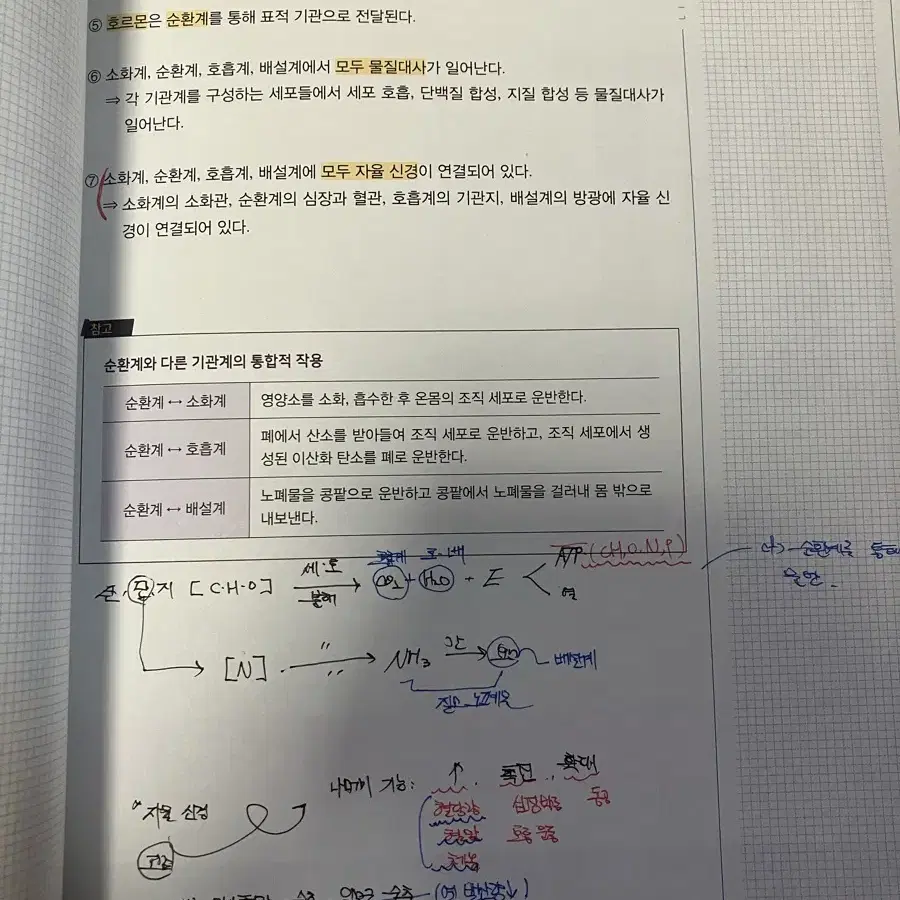 ⑤ 호르몬은 순환계를 통해 표적 기관으로 전달된다.
⑥ 소화계, 순환계, 호흡계, 배설계에서 모두 물질대사가 일어난다.
⇒ 각 기관계를 구성하는 세포들에서 세포 호흡, 단백질 합성, 지질 합성 등 물질대사가
일어난다.
⑦ 소화계, 순환계, 호흡계, 배설계에 모두 자율 신경이 연결되어 있다.
⇒ 소화계의 소화관, 순환계의 심장과 혈관, 호흡계의 기관지, 배설계의 방광에 자율 신
경이 연결되어 있다.
참고
순환계와 다른 기관계의 통합적 작용
순환계 ↔ 소화계
영양소를 소화, 흡수한 후 온몸의 조직 세포로 운반한다.
순환계 ↔ 호흡계
폐에서 산소를 받아들여 조직 세포로 운반하고, 조직 세포에서 생
성된 이산화 탄소를 폐로 운반한다.
순환계 ↔ 배설계
노폐물을 콩팥으로 운반하고 콩팥에서 노폐물을 걸러내 몸 밖으로
내보낸다.
호·배 ATP (C,H,O,N,P) 순환계를 통해
세·호
단 지 [C·H·O] → CO₂ + H₂O + E 운반.
분해 열
[N] → NH₃ 간 → 배설계
질소 노폐물
나머지 기능: ↑, 촉진, 확대
자율 신경 혈당량 심장박동 동공
혈압 호흡 운동
체온